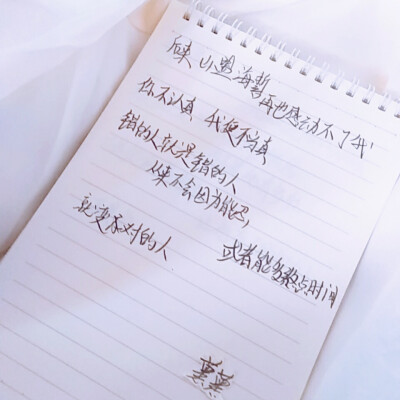 后来 山盟海誓再也感动不了我
你不认真 我便不当真
错的人就是错的人
从来不会因为能忍,
或者能多熬点时间
就变成对的人
薰薰